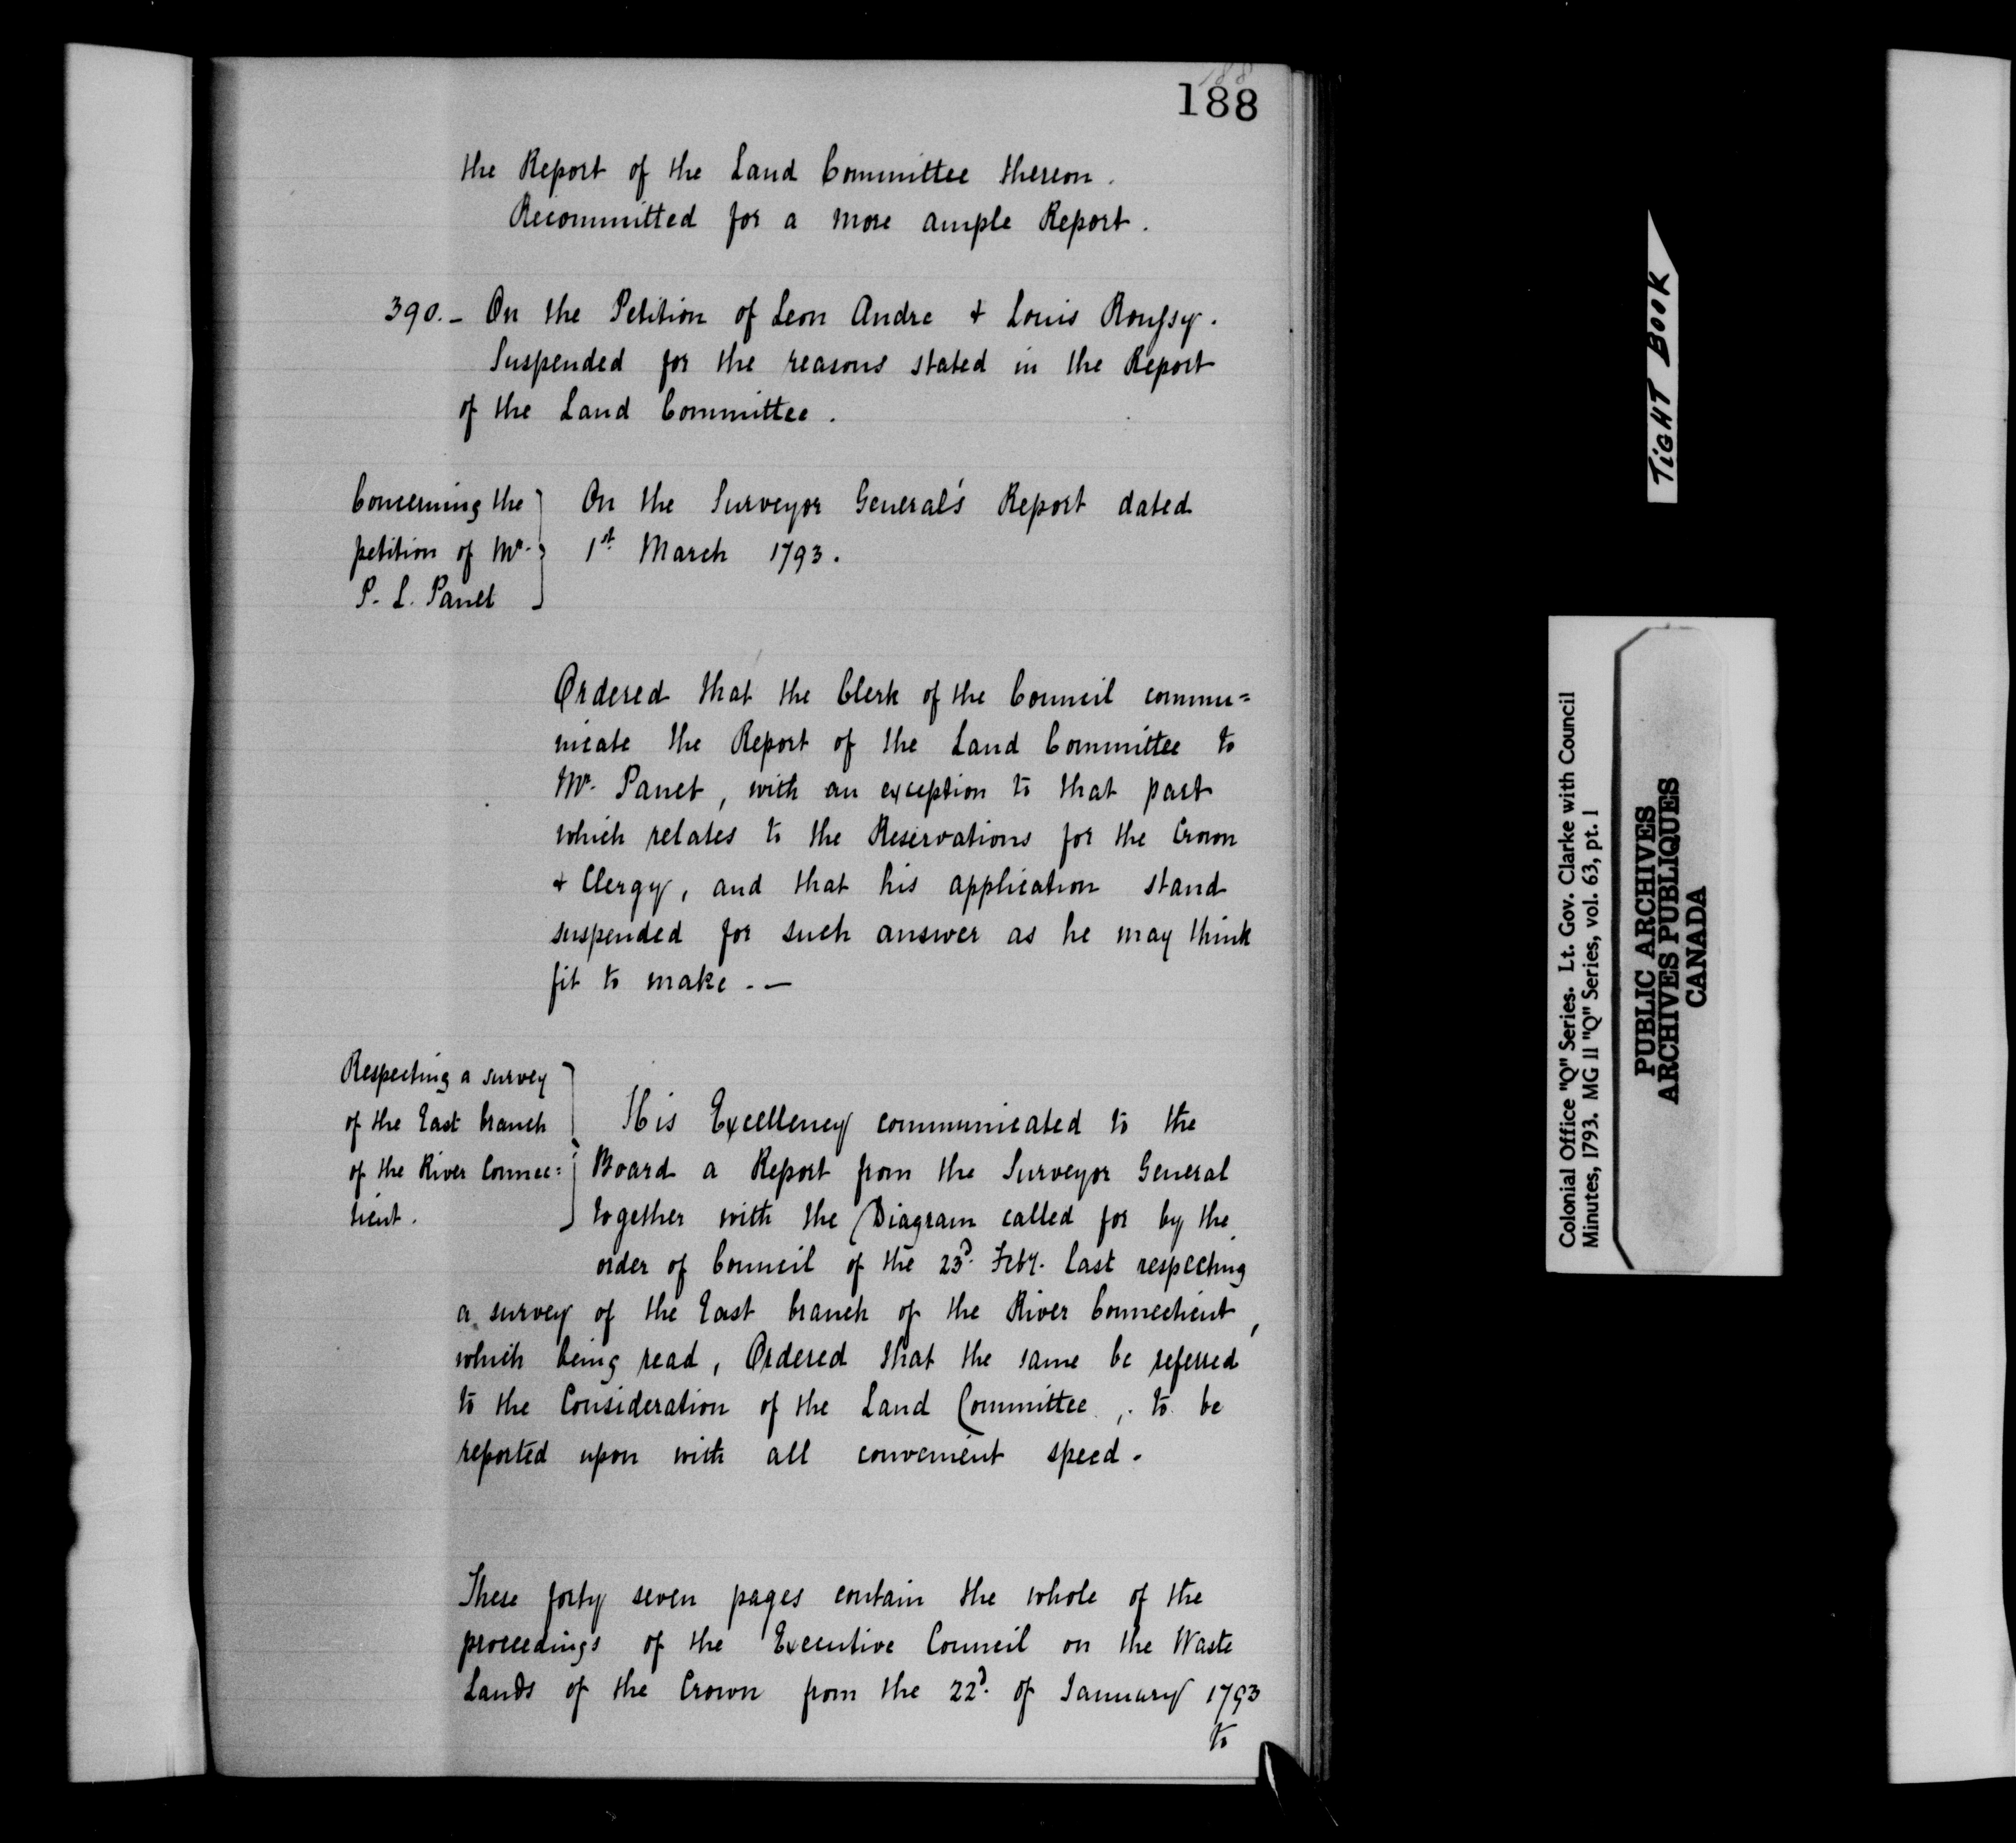 188
188
the Report of the Land Committee thereon.
Recommitted for a more ample Report.
390. - On the Petition of Leon Andre & Louis Roussy.
Suspended for the reasons stated in the Report
of the Land Committee.
Concerning the
petition of Mr.
P. L. Panet
On the Surveyor General's Report dated
1st. March 1793.
Ordered that the Clerk of the Council commu=
nicate the Report of the Land Committee to
Mr. Panet, with an exception to that part
which relates to the Reservations for the Crown
& Clergy, and that his application stand
suspended for such answer as he may think
fit to make. -
Respecting a survey
of the East branch
of the River Connec=
ticut.
His Excellency communicated to the
Board a Report from the Surveyor General
together with the Diagram called for by the
order of Council of the 23d. Feby. last respecting
a survey of the East branch of the River Connecticut,
which being read, Ordered that the same be referred
to the Consideration of the Land Committee, to be
reported upon with all convenient speed.
These forty seven pages contain the whole of the
proceedings of the Executive Council on the Waste
Lands of the Crown from the 22d. of January 1793
to
TIGHT BOOK
Colonial Office "Q" Series. Lt. Gov. Clarke with Council
Minutes, 1793. MG 11 "Q" Series, vol. 63, pt. 1
PUBLIC ARCHIVES
ARCHIVES PUBLIQUES
CANADA